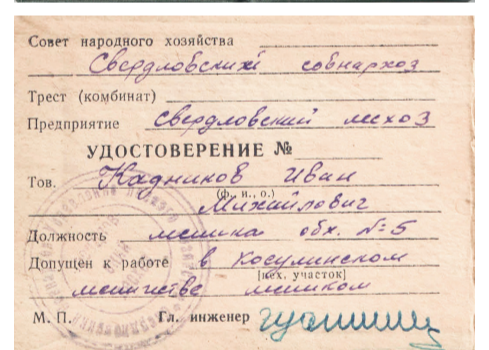 Совет народного хозяйства
Свердловский совнархоз
Трест (комбинат)
Предприятие Свердловский лесхоз
УДОСТОВЕРЕНИЕ №
Тов. Кадников Иван
(ф., и., о.)
Михайлович
Должность лесника обх. №5
Допущен к работе в Косулинском
[цех. участок]
лесничестве лесником
М. П. Гл. инженер